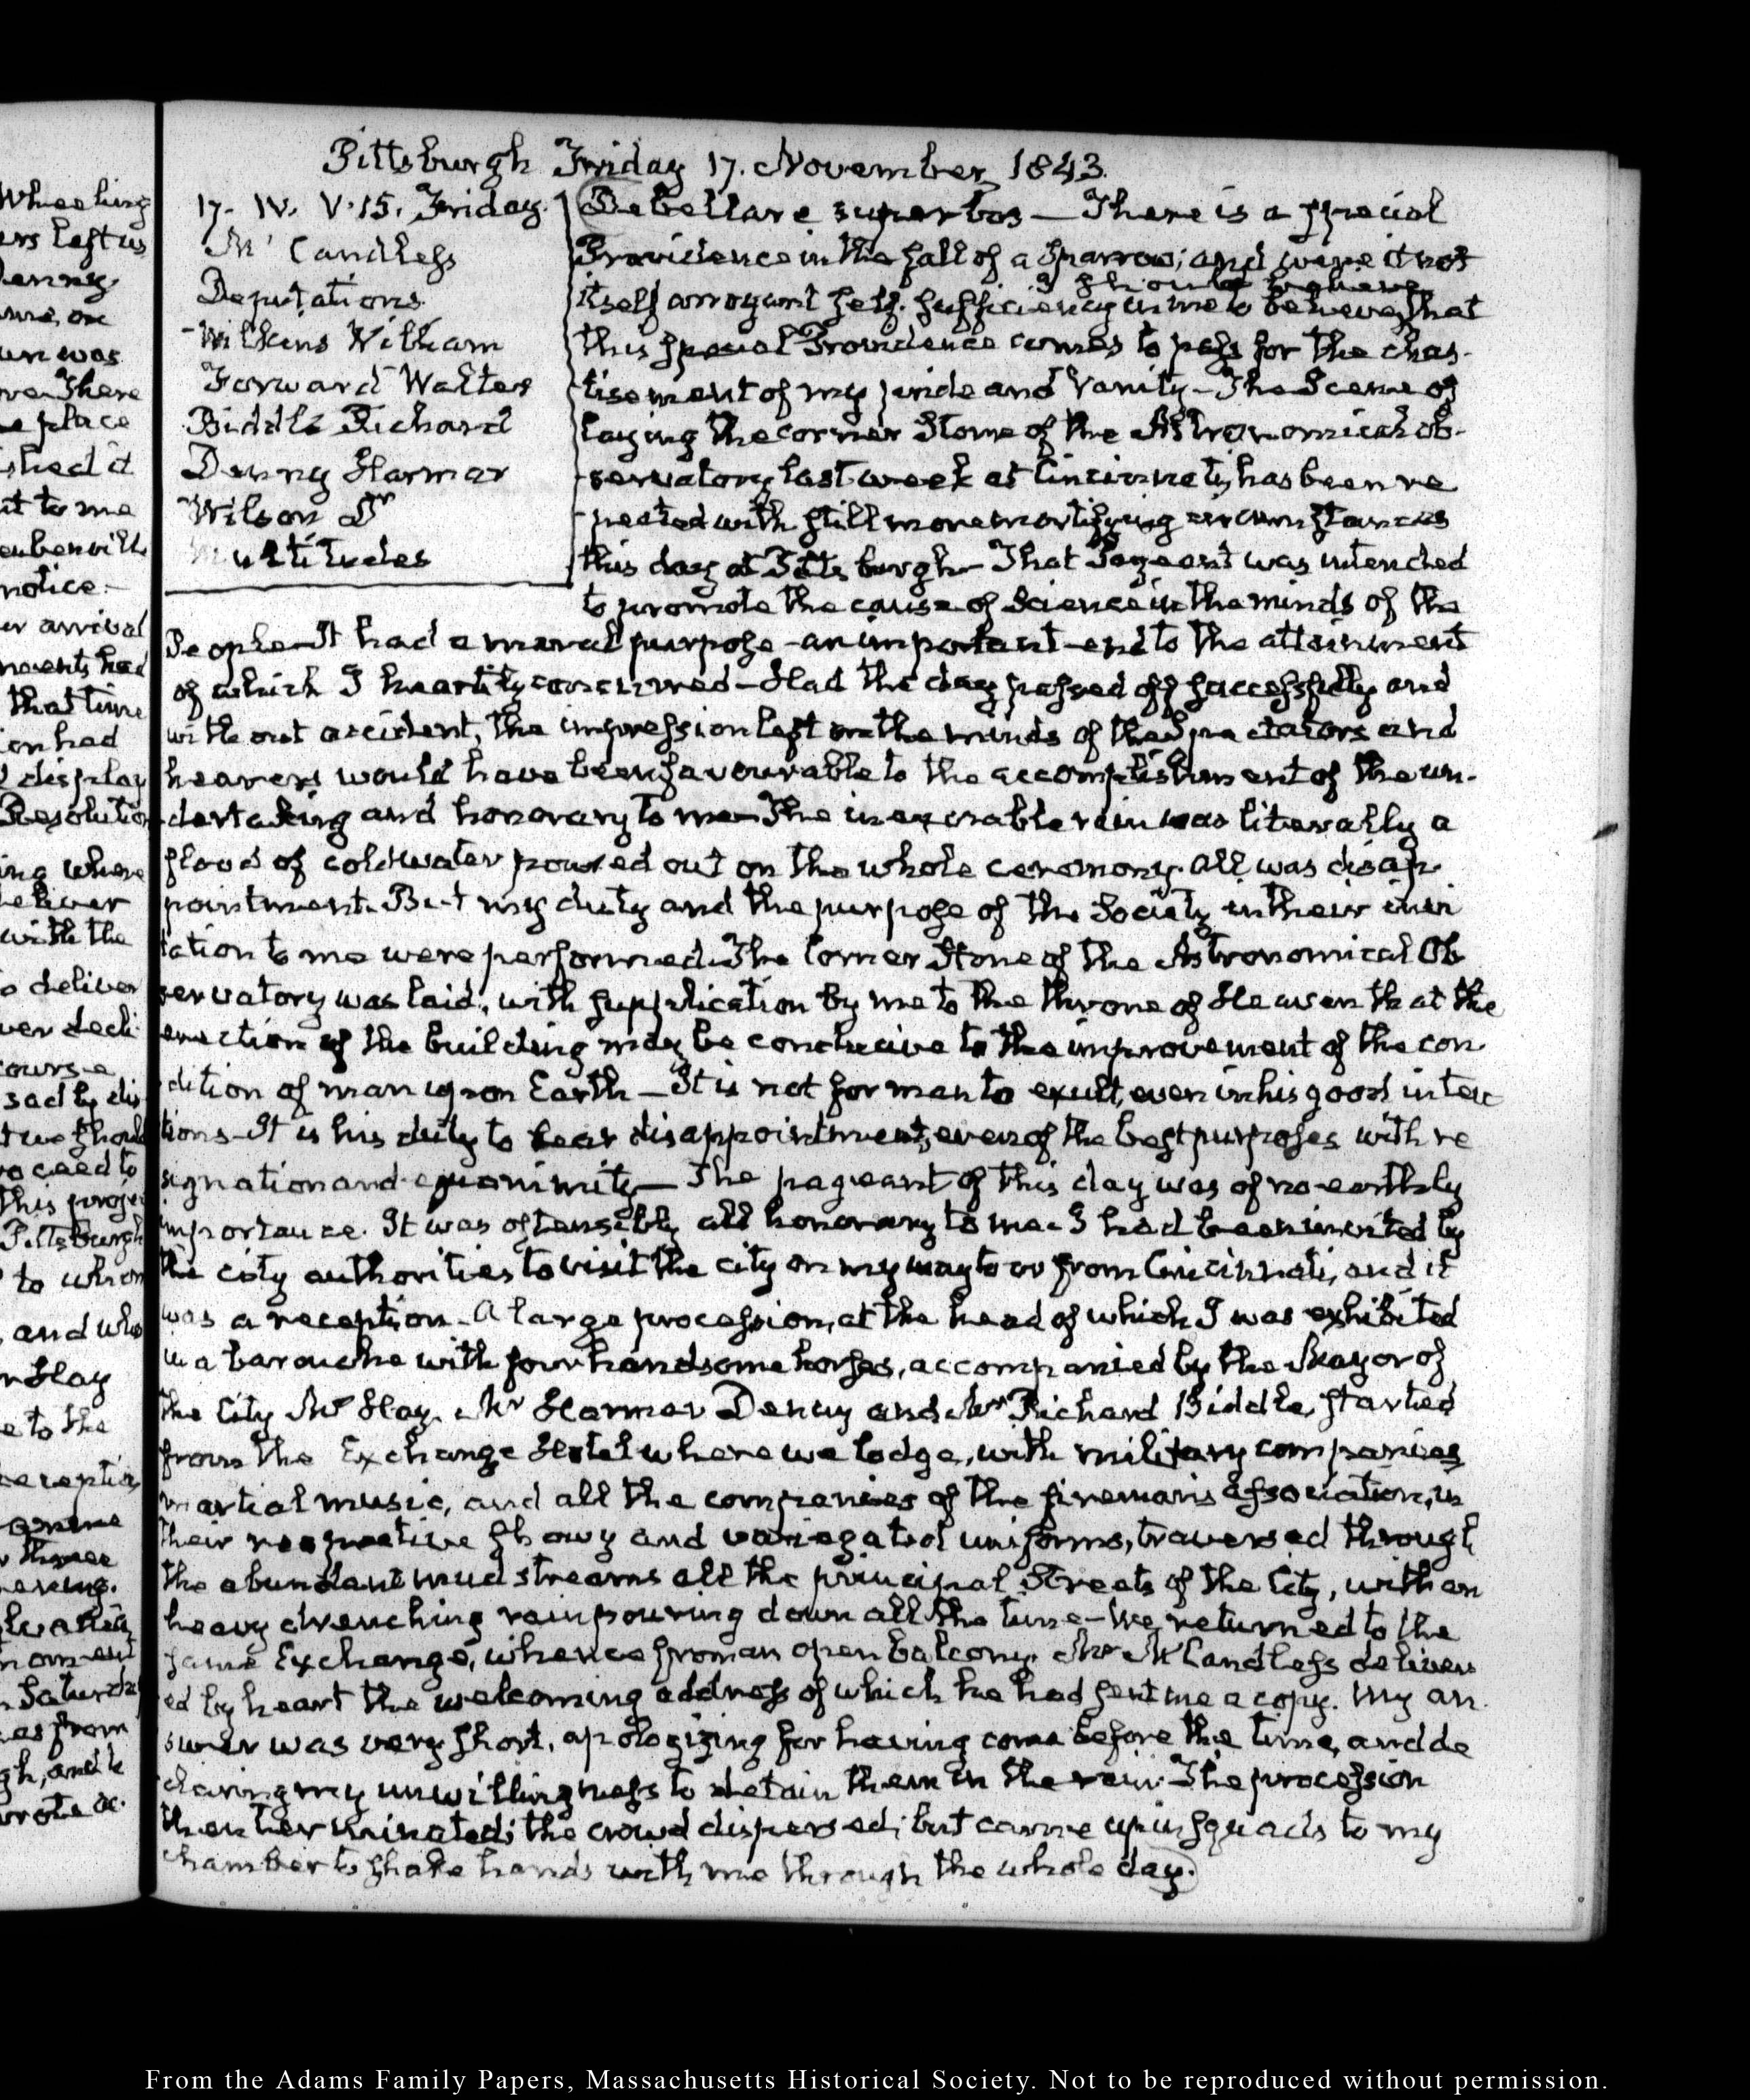 Wheeling
ers left us
Denny
me, on
un was
ve There
e place
shed it
it to me
eubenville
notice.—
er arrival
ments had
that time
ion had
display
Resolution
ing where
deliver
with the
o deliver
ver decli
course
sadly dis
t we should
roceed to
this projec
Pittsburgh
to whom
, and who
r Hay
e to the
reception
three
Saturday
as from
gh, and to
wrote &c.
Pittsburgh Friday 17. November 1843.
17. IV. V.15. Friday.
Mc Candless
Deputations
Wilkins William
Forward Walter
Biddle Richard
Denny Harmar
Wilson Dr
Multitudes
Debellare superbos — There is a special
Providence in the fall of a Sparrow; and were it not
I should believe
itself arrogant self-sufficiency in me to believe, that
this special Providence comes to pass for the chas-
tisement of my pride and Vanity — The Scene of
laying the corner Stone of the Astronomical ob-
servatory last week at Cincinnati, has been re
peated with still more mortifying circumstances
this day at Pittsburgh — That Pageant was intended
to promote the cause of Science in the minds of the
People — It had a moral purpose - an important end to the attainment
of which I heartily concurred — Had the day passed off successfully and
without accident, the impression left on the minds of the Spectators and
hearers would have been favourable to the accomplishment of the un-
dertaking and honorary to me — The inexorable rain was literally a
flood of cold water poured out on the whole ceremony. All was disap-
pointment. But my duty and the purpose of the Society in their invi
tation to me were performed. The Corner Stone of the Astronomical Ob
servatory was laid, with supplication by me to the throne of Heaven that the
erection of the building may be conducive to the improvement of the con
dition of man upon Earth — It is not for man to exult, even in his good inten
tions — It is his duty to bear disappointment, even of the best purposes with re
signation and equanimity — The pageant of this day was of no earthly
importance. It was ostensibly all honorary to me — I had been invited by
the city authorities to visit the city on my way to or from Cincinnati, and it
was a reception — A large procession, at the head of which I was exhibited
in a barouche with four handsome horses, accompanied by the Mayor of
the City Mr Hay, Mr Harmar Denny and Mr Richard Biddle, started
from the Exchange Hotel where we lodge, with military companies
martial music, and all the companies of the fireman's association, in
their respective showy and variegated uniforms, traversed through
the abundant mud streams all the principal Streets of the City, with an
heavy drenching rain pouring down all the time — We returned to the
same Exchange, whence from an open balcony, Mr McCandless deliver
ed by heart the welcoming address of which he had sent me a copy. My an
swer was very short, apologizing for having come before the time, and de
claring my unwillingness to detain them in the rain. The procession
then terminated; the crowd dispersed; but came up in squads to my
chamber to shake hands with me through the whole day.
From the Adams Family Papers, Massachusetts Historical Society. Not to be reproduced without permission.